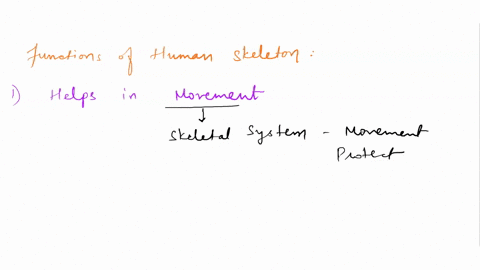 Functions of Human Skeleton:
1) Helps in Movement
Skeletal System - Movement
Protect